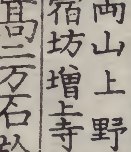 両山上野
宿坊増上寺
高二万石於